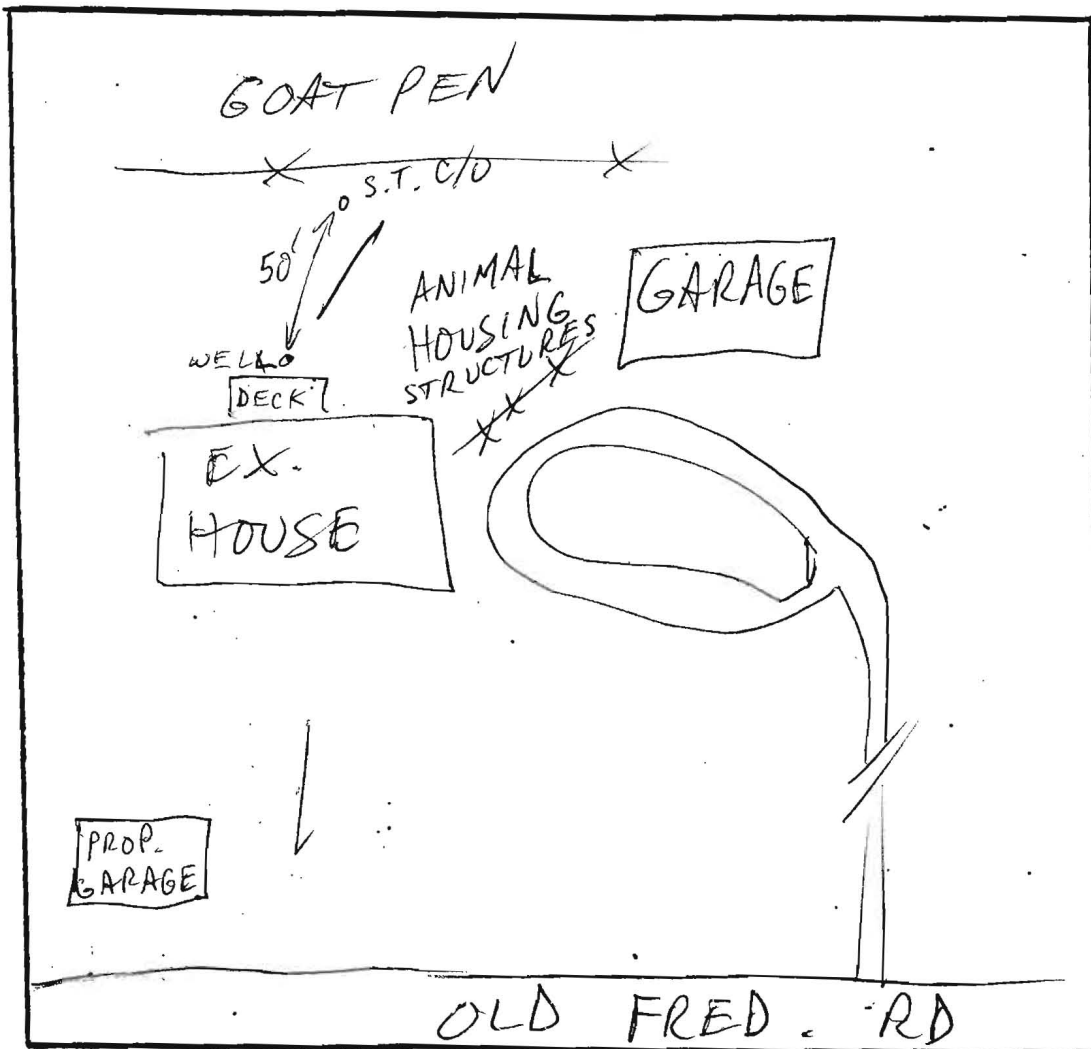 GOAT PEN
S.T. C/O
50'
ANIMAL
HOUSING
STRUCTURES
GARAGE
WELL
DECK
EX.
HOUSE
PROP.
GARAGE
OLD FRED. RD